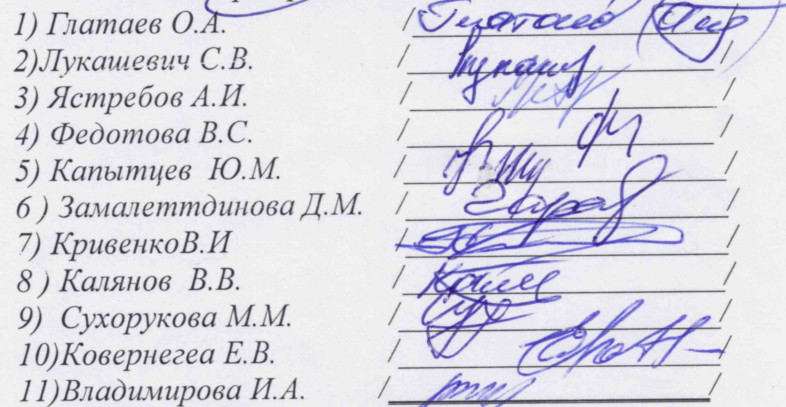 1) Глатаев О.А. /Глатаев /
2)Лукашевич С.В. / /
3) Ястребов А.И. / /
4) Федотова В.С. / /
5) Капытцев Ю.М. / /
6 ) Замалеттдинова Д.М. / /
7) КривенкоВ.И / /
8 ) Калянов В.В. / /
9) Сухорукова М.М. / /
10)Ковернегеа Е.В. / /
11)Владимирова И.А. / /